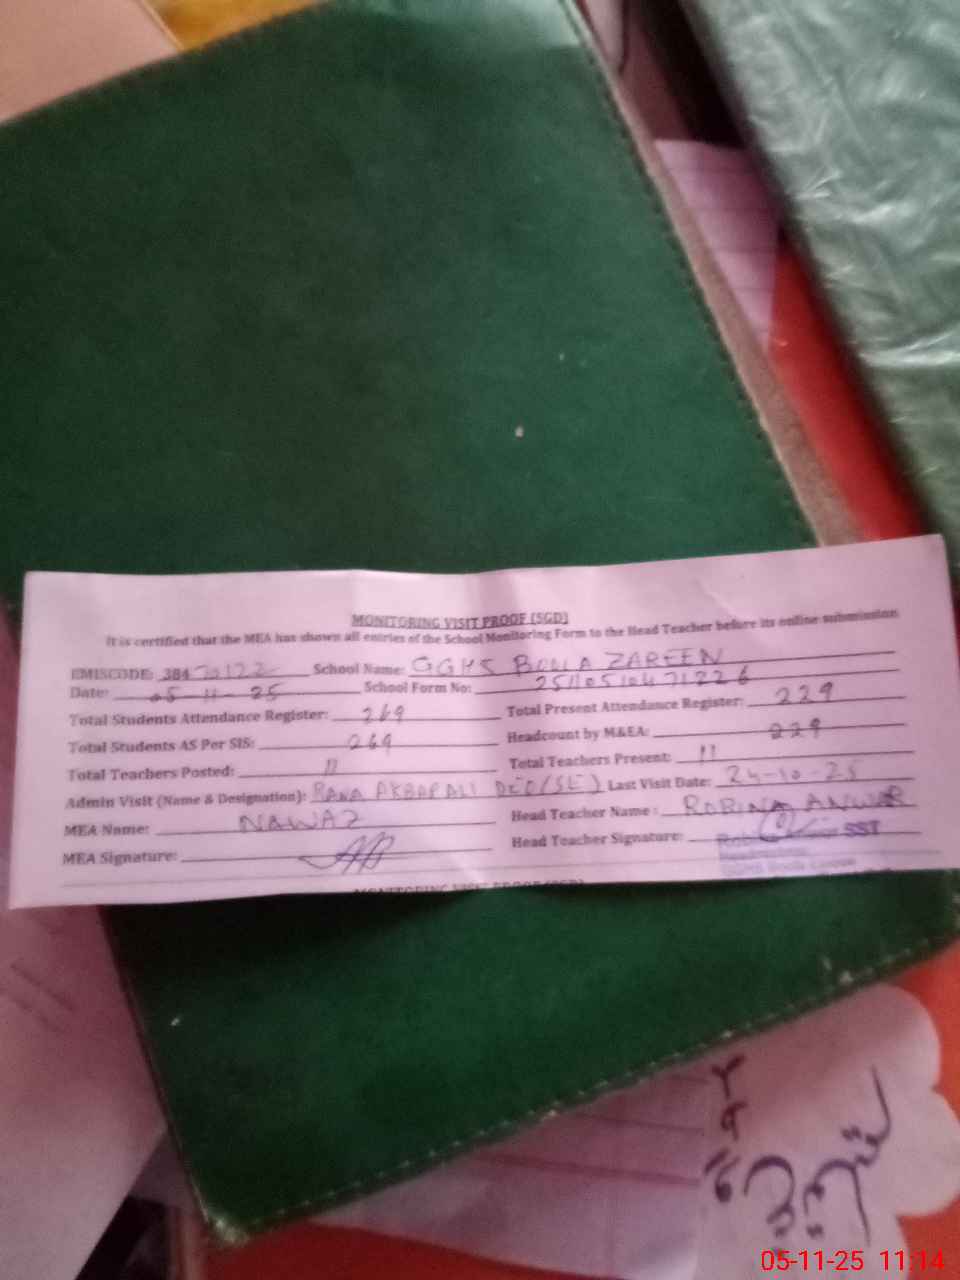 MONITORING VISIT PROOF (SGD)
It is certified that the MEA has shown all entries of the School Monitoring Form to the Head Teacher before its online submission
EMISCODE: 384 School Name: GGHS BONA ZAREEN
Date: 05-11-25 School Form No: 25110510471226
Total Students Attendance Register: 269 Total Present Attendance Register: 229
Total Students AS Per SIS: 269 Headcount by M&EA: 229
Total Teachers Posted: 11 Total Teachers Present: 11
Admin Visit (Name & Designation): RANA AKBAR ALI DEO (SE) Last Visit Date: 24-10-25
MEA Name: NAWAZ Head Teacher Name: ROBINA ANWAR
MEA Signature: Head Teacher Signature:
SST
MONITORING VISIT PROOF (SGD)
05-11-25 11:14